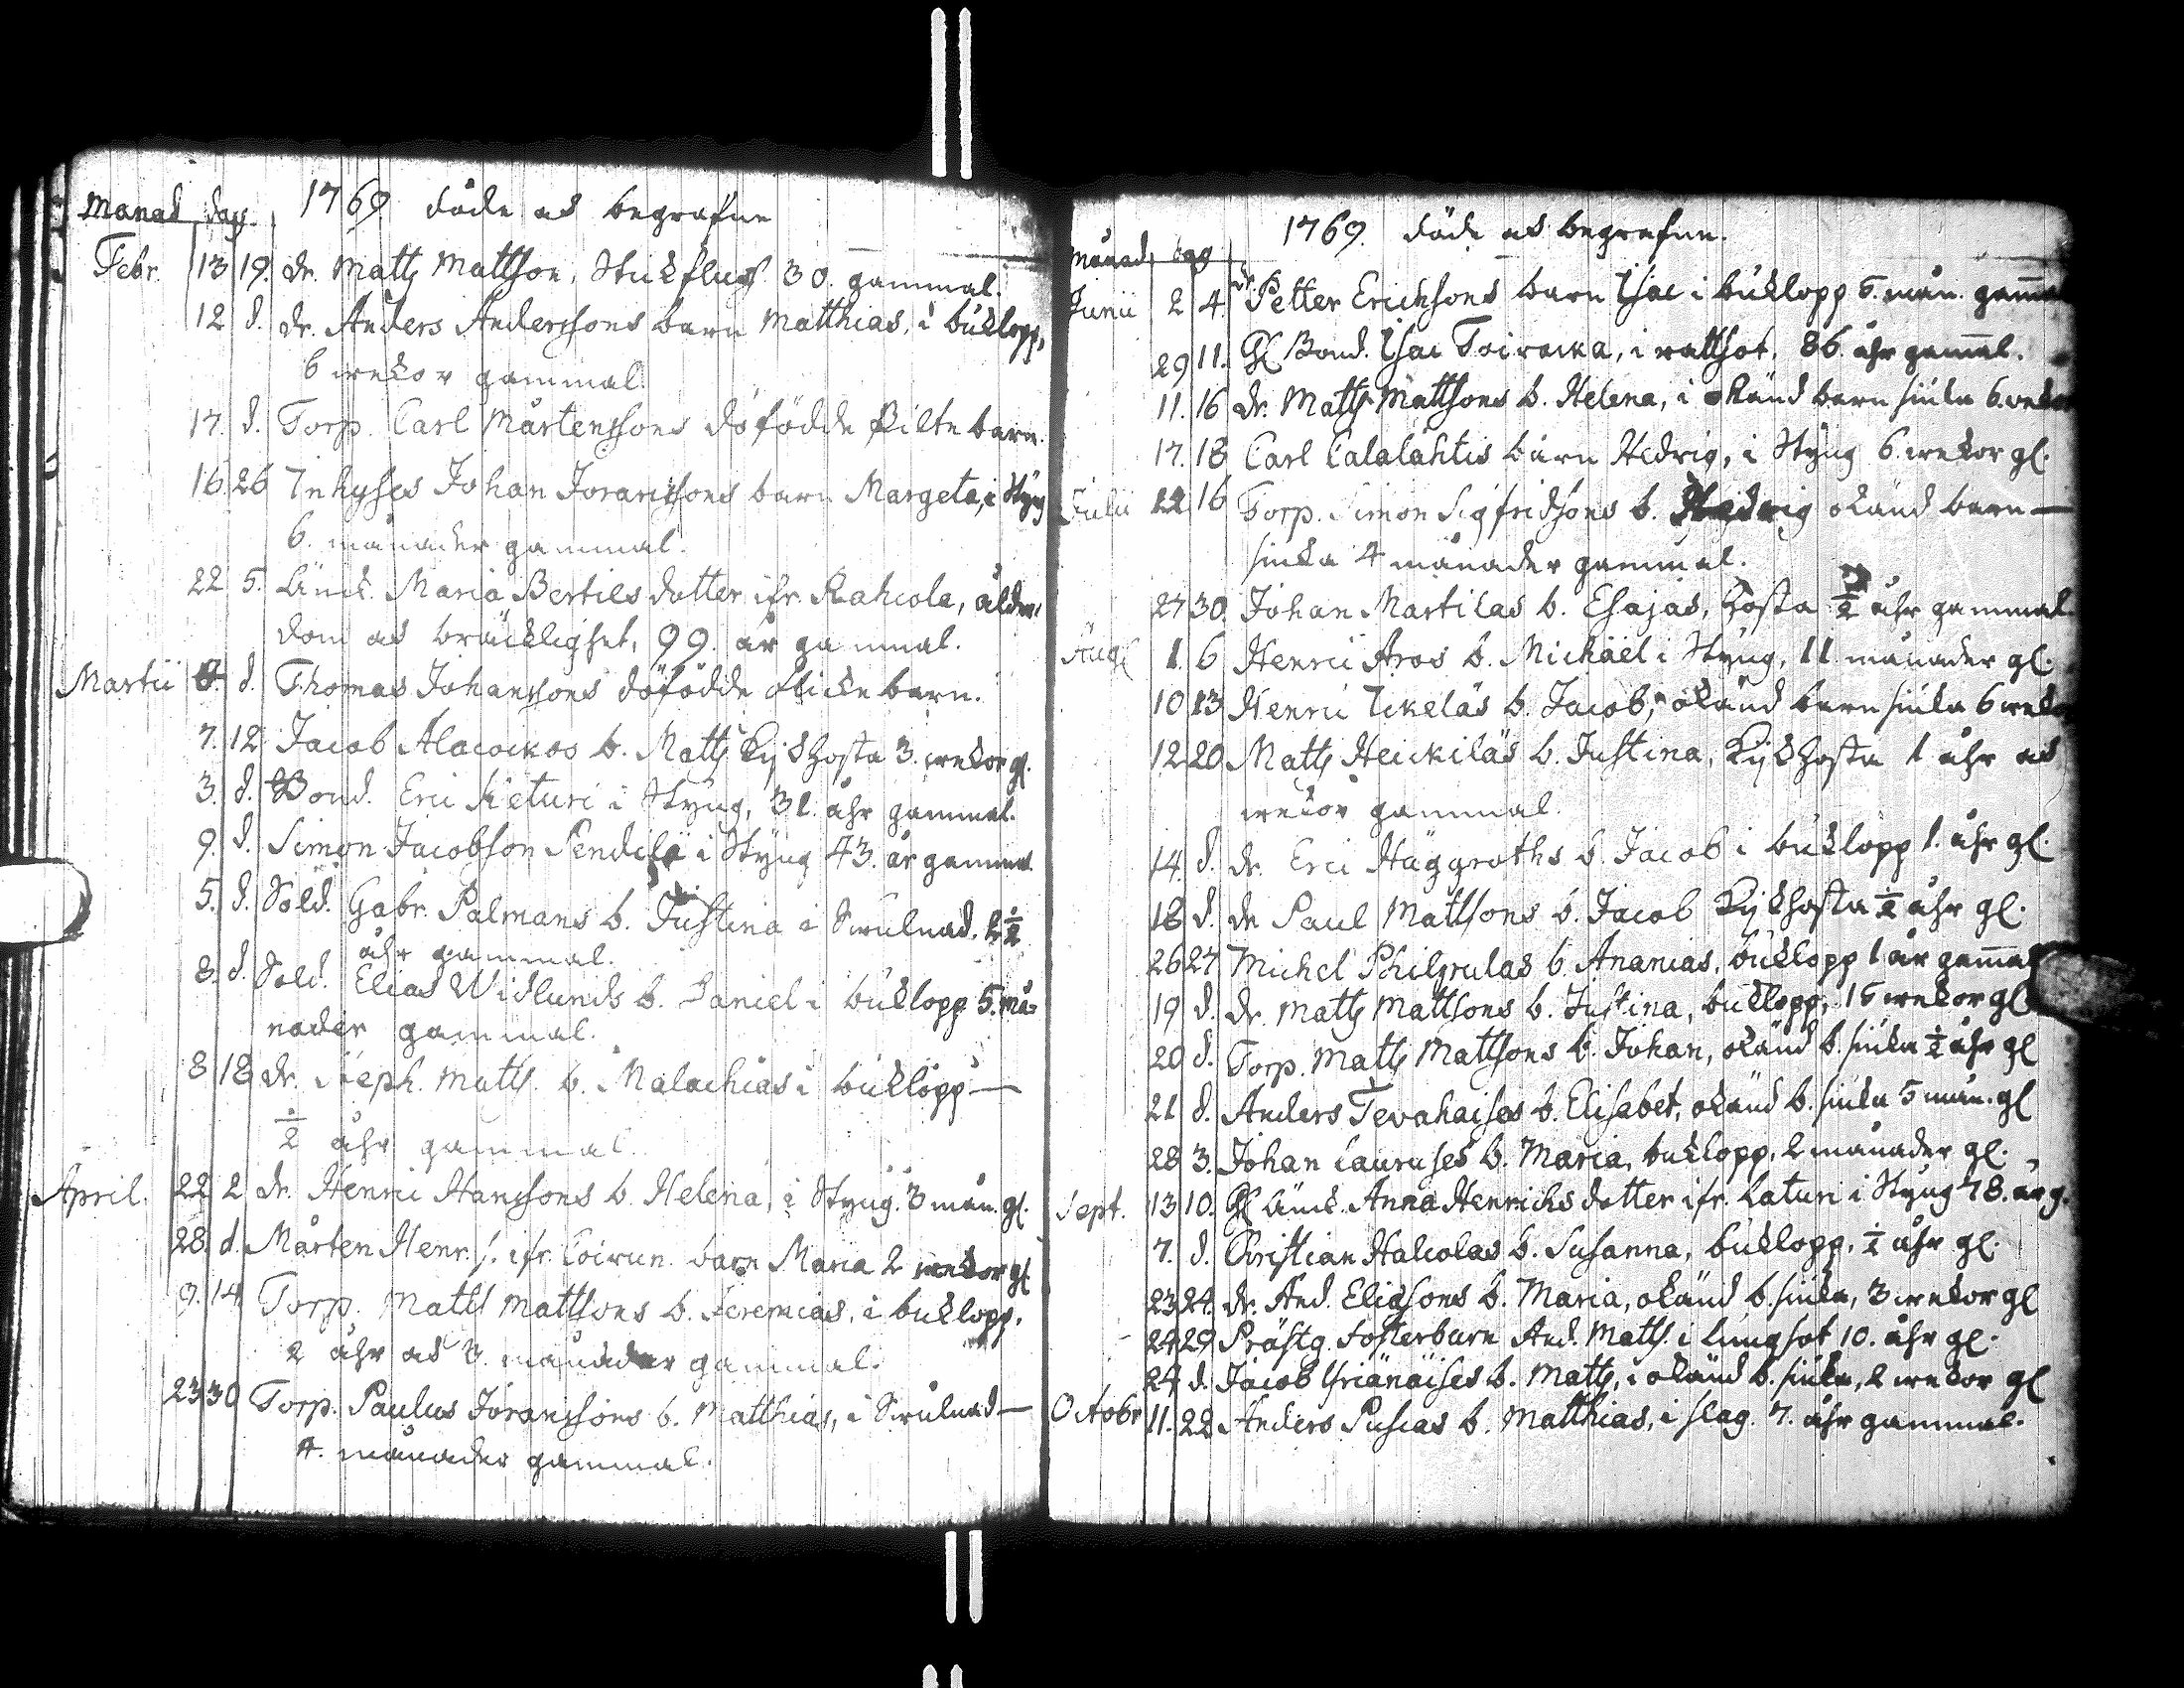 Månad dag 1769 döde och begrafne
Febr. 13 19. dr. Matts Mattson, Stickflug 30. gammal.
12 d. dr. Anders Anderssons barn Matthias, i buklopp,
6 wekor gammal.
17. d. Torp. Carl Mårtenssons döfödde Piltebarn.
16 26 Inhyses Johan Joranssons barn Margeta, i Styng
6. månader gammal.
22 5. Änck. Maria Bertils dotter ifr. Rahcola, ålder-
dom och bräcklighet, 99. år gammal.
Martii d. Thomas Johanssons döfödde flickebarn.
7. 12 Jacob Alacockos b. Matts Kijkhosta 3. wekor gl.
3. d. Bond. Eric Keturi i Styng, 31. åhr gammal.
9. d. Simon Jacobson i Styng 43. år gammal.
5. d. Sold. Gabr. Palmans b. Justina i Swulnad. 2 1/2
åhr gammal.
8. d. Sold. Elias Widlunds b. Daniel i buklopp 5. må-
nader gammal.
8 18 dr. Steph. Matts. b. Malachias i buklopp —
1/2 åhr gammal.
April. 22 2 dr. Henric Hanssons b. Helena, i Styng. 3 mån. gl.
28. d. Mårten Henr. s. ifr. barn Maria 2 wekor gl
9. 14. Torp. Matts Mattsons b. Jeremias, i buklopp.
2 åhr och 3. månader gammal.
23 30 Torp. Paulus Joranssons b. Matthias, i Swulnad —
4. månader gammal.
Månad dag 1769. döde och begrafne.
Junii 2 4. dr. Petter Ericksons barn Isac i buklopp 5. mån. gam̄al
29 11. Gl Bond. Isac Toiwacka, i wattsot. 86 åhr gam̄al.
11. 16 dr. Matts Mattsons b. Helena, i okänd barn siuka 6. wekor
17. 18 Carl Calalahtis barn Hedvig, i Styng 6 wekor gl.
Julii 22 16 Torp. Simon Sigfridsons b. Hedvig okänd barn —
siuka 4 månader gammal.
27 30. Johan Martilas b. Esajas, hosta 1/2 åhr gammal
Aug 1. 6 Henric Aros b. Michäel i Styng, 11 månader gl.
10 13 Henric Ickeläs b. Jacob, okänd barn siuka 6 wekor
12 20 Matts Heickiläs b. Justina, Kijkhosta 1 åhr och
wekor gammal.
14. d. dr. Eric Häggroths b. Jacob i buklopp 1. åhr gl.
18 d. dr Paul Mattsons b. Jacob Kijkhosta 1/2 åhr gl.
26 27 Michel b. Ananias, buklopp 1 år gam̄al
19 d. dr. Matts Mattsons b. Justina, buklopp, 15 wekor gl
20 d. Torp. Matts Mattsons b. Johan, okänd b. siuka 1/2 åhr gl
21 d. Anders Tevahaises b. Elisabet, okänd b. siuka 5 mån. gl
28 3. Johan Lauruses b. Maria, buklopp, 2 månader gl.
Sept. 13 10. Gl Änck. Anna Henrichs dotter ifr. Laturi i Styng 78. år g.
7. d. Christian Halcolas b. Susanna, buklopp, 1/2 åhr gl.
23 24. dr. And. Eliasons b. Maria, okänd b. siuka, 3 wekor gl
24 29 Prästg. fosterbarn And. Matts. i lungsot 10. åhr gl.
24 d. Jacob b. Matts, i okänd b. siuka, 2 wekor gl
Octobr 11. 22 Anders Puscas b. Matthias, i slag. 7. åhr gammal.